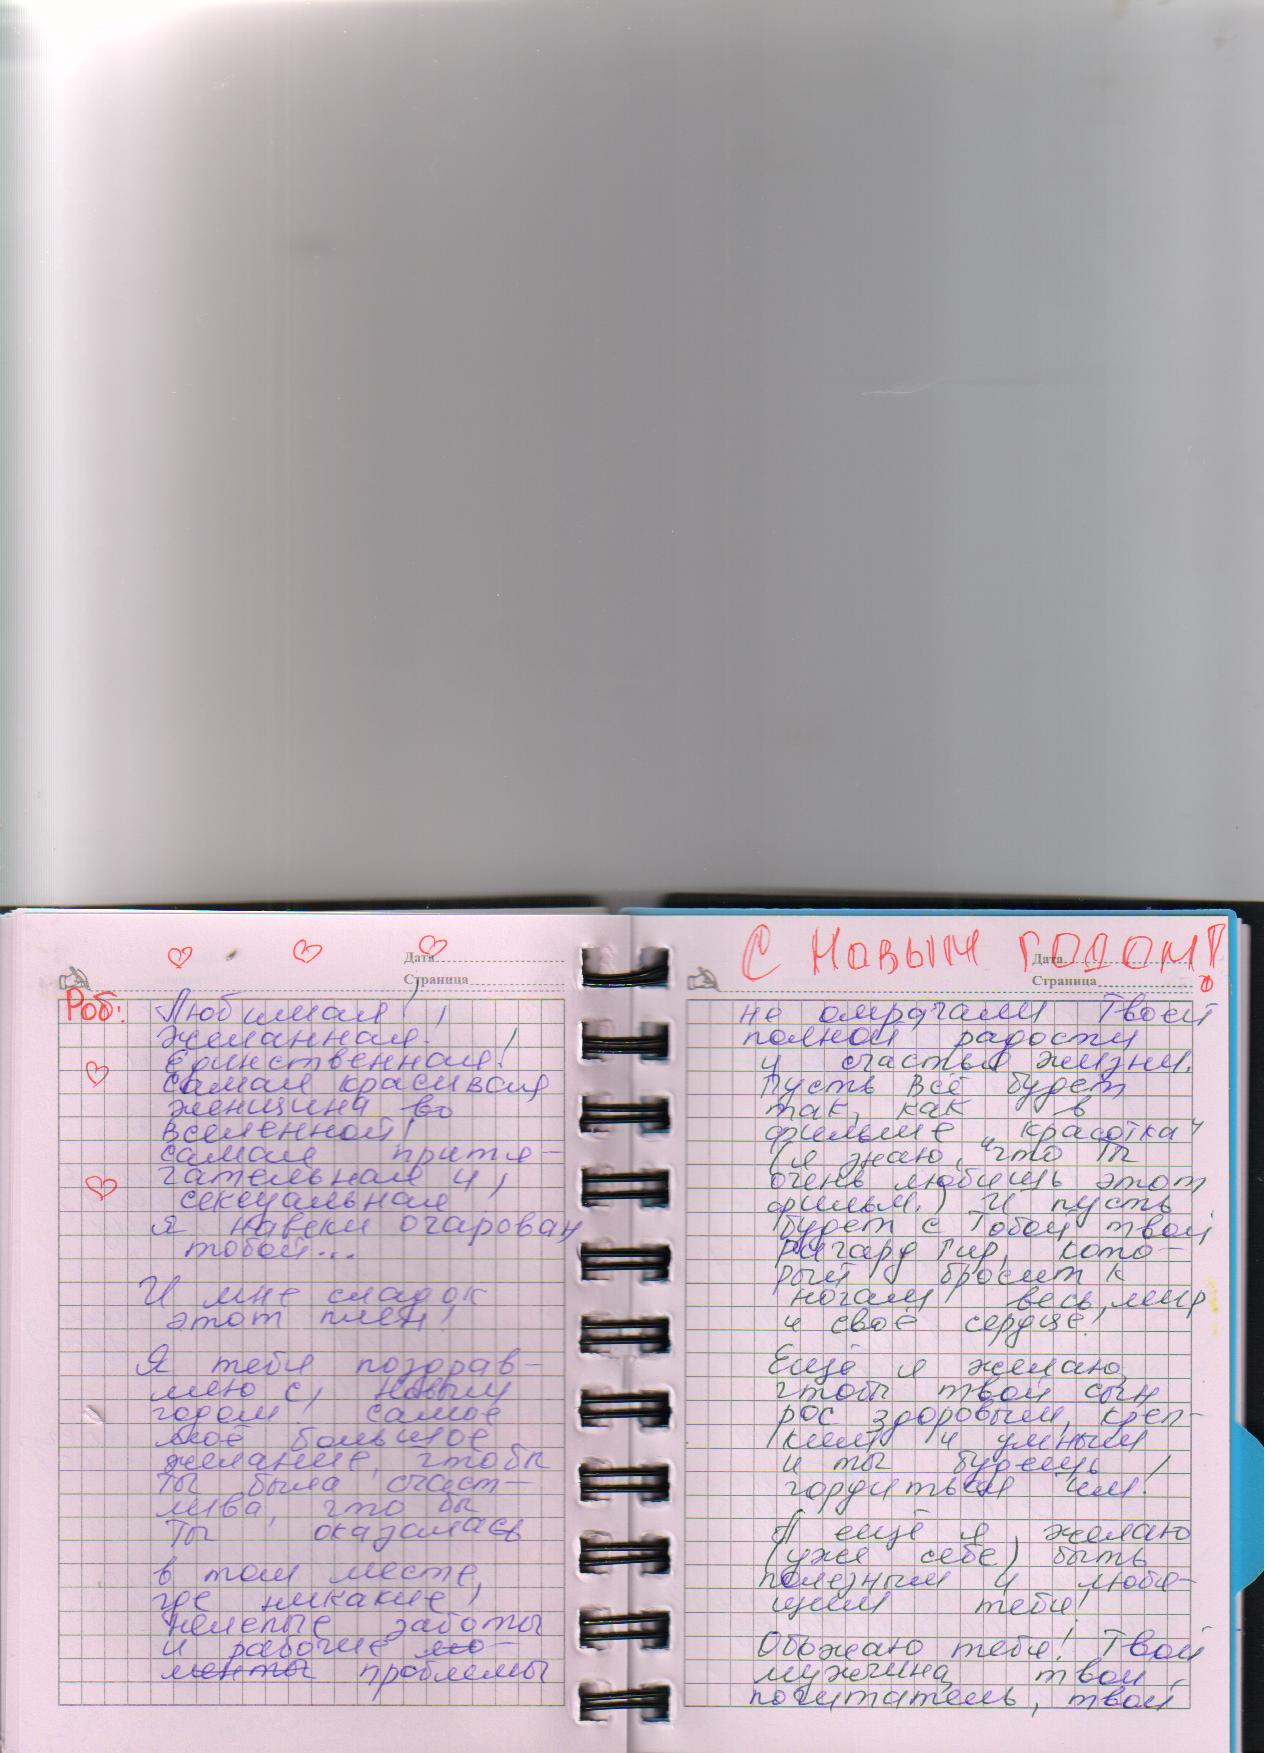 Дата
Страница
Роб: Любимая!
Желанная!
Единственная!
самая красивая
женщина во
вселенной!
самая притя-
гательная и
сексуальная
Я навеки очарован
тобой...
И мне сладок
этот плен!
Я тебя поздрав-
ляю с новым
годом! самое
моё большое
желание, чтобы
ты была счаст-
лива, что бы
ты оказалась
в том месте,
где никакие
нелепые заботы
и рабочие мо-
менты проблемы
С Новым годом!
Дата
Страница
не омрачали твоей
полной радости
и счастья жизни.
Пусть всё будет
так, как в
фильме „Красотка"
(я знаю, что ты
очень любишь этот
фильм.) И пусть
будет с тобой твой
Ричард Гир, кото-
рый бросит к
ногам весь мир
и своё сердце!
Ещё я желаю,
чтобы твой сын
рос здоровым, креп-
ким и умным
и ты будешь
гордиться им!
А ещё я желаю
(уже себе) быть
полезным и любя-
щим тебя!
Обожаю тебя! Твой
мужчина, твой
почитатель, твой